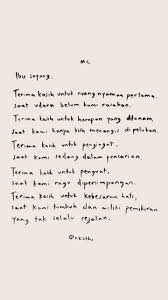 Ibu sayang,
Terima kasih untuk ruang nyaman pertama.
Saat udara belum kami rasakan.
Terima kasih untuk harapan yang ditanam
Saat kami hanya bisa menangis di pelukan.
Terima kasih untuk pengingat
Saat kami sedang dalam pencarian.
Terima kasih untuk penguat
Saat kami ragu dipersimpangan.
Terima kasih untuk kebesaran hati,
Saat kami tumbuh dan miliki pemikiran
yang tak selalu sejalan.